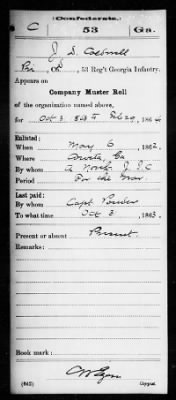 Confederate.
C 53 Ga.
J. D. Caldwell
Pvt, Co. , 53 Reg't Georgia Infantry.
Appears on
Company Muster Roll
of the organization named above,
for Oct 3 '63 to Feb 29, 1864
Enlisted:
When May 6, 1862.
Where Ga
By whom A
Period For the War.
Last paid:
By whom Capt
To what time Oct 3, 1863.
Present or absent Present
Remarks:
Book mark:
(642) Copyist.